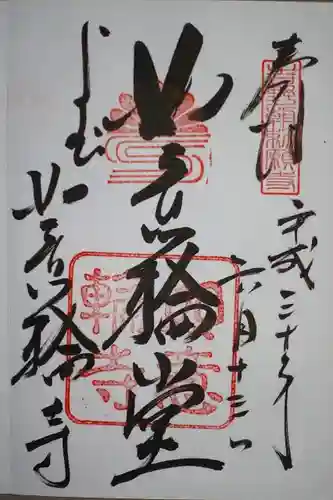 奉拝
平成三十年
六月十三日
如意輪堂
よしの
如意輪寺
如意
輪寺